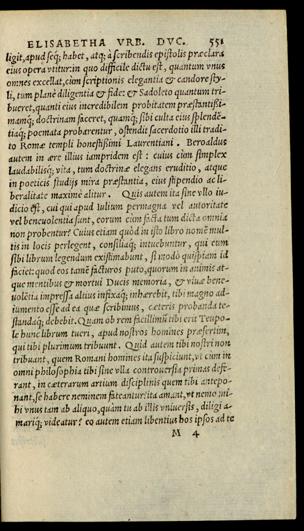 ELISABETHA VRB. DVC. 551
ligit, apud seq́; habet, atq; à scribendis epistolis præclara
eius opera vtitur: in quo difficile dictu est, quantum vnus
omnes excellat, cùm scriptionis elegantia & candore sty-
li, tum planè diligentia & fide: & Sadoleto quantum tri-
bueret, quanti eius incredibilem probitatem præstantißi-
mamq́; doctrinam faceret, quamq́; sibi culta eius splendē-
tiaq́; poemata probarentur, ostendit sacerdotio illi tradi-
to Romæ templi honestißimi Laurentiani. Beroaldus
autem in ære illius iampridem est: cuius cùm simplex
laudabilisq́; vita, tum doctrinæ elegans eruditio, atque
in poeticis studijs mira præstantia, eius stipendio ac li-
beralitate maximè alitur. Quis autem ita sine vllo iu-
dicio est, cui qui apud Iulium permagna vel autoritate
vel beneuolentia sunt, eorum cùm facta tum dicta omnia
non probentur? Cuius etiam quòd in isto libro nomē mul-
tis in locis perlegent, consiliaq́; intuebuntur, qui eum
sibi librum legendum existimabunt, si modò quispiam id
faciet: quod eos tamē facturos puto, quorum in animis at-
que mentibus & mortui Ducis memoria, & viuæ bene-
uolētia impressa altius infixaq́; inhærebit, tibi magno ad-
iumento esse ad ea quæ scribimus, cæteris probanda te-
standaq́; debebit. Quam ob rem facillimū tibi erit Teupo-
le hunc librum tueri, apud nostros homines præsertim,
qui tibi plurimum tribuunt. Quid autem tibi nostri non
tribuant, quem Romani homines ita suspiciunt, vt cùm in
omni philosophia tibi sine vlla controuersia primas defe-
rant, in cæterarum artium disciplinis quem tibi antepo-
nant, se habere neminem fateantur: ita amant, vt nemo mi-
hi vnus tam ab aliquo, quàm tu ab illis vniuersis, diligi a-
mariq́; videatur? eo autem etiam libentius hos ipsos ad te
M 4